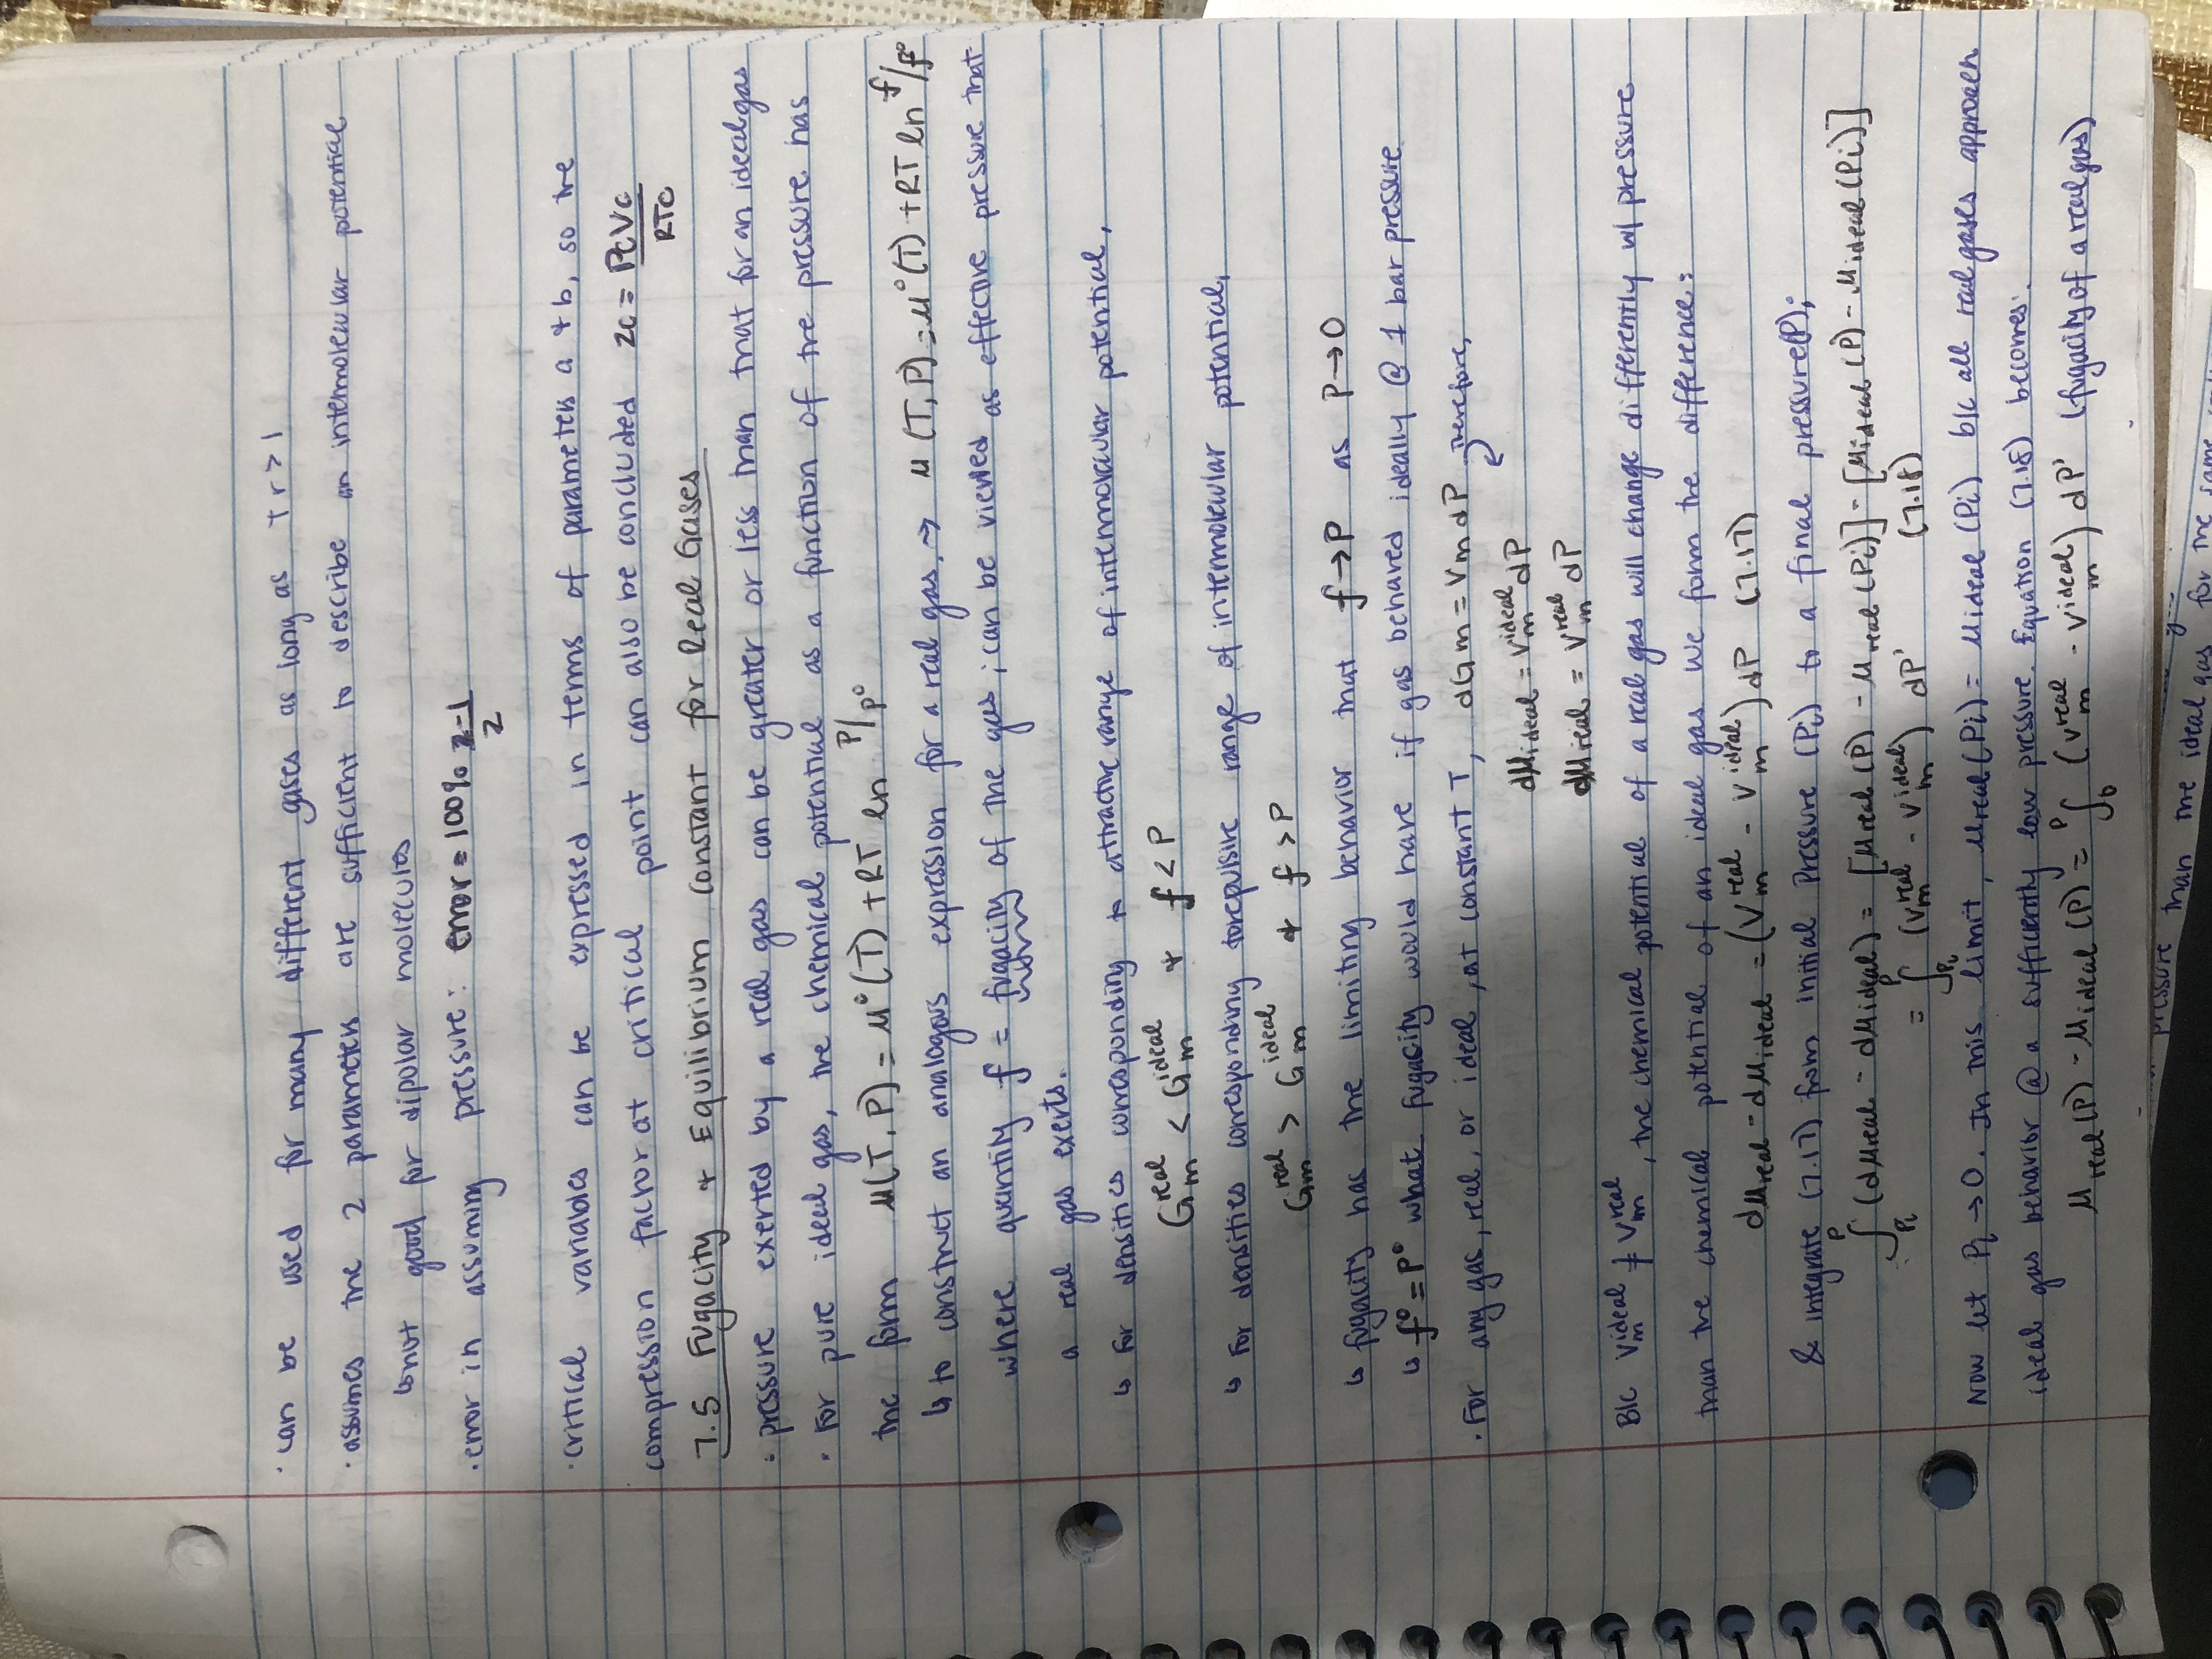 · can be used for many different gases as long as Tr > 1
· assumes the 2 parameters are sufficient to describe an intermolecular potential
↳ not good for dipolar molecules
· error in assuming pressure: error = 100% (z-1)/z
· critical variables can be expressed in terms of parameters a & b, so the
compression factor at critical point can also be concluded Zc = PcVc/RTc
7.5 Fugacity & Equilibrium Constant for Real Gases
· pressure exerted by a real gas can be greater or less than that for an ideal gas
· For pure ideal gas, the chemical potential as a function of the pressure has
the form μ(T, P) = μ°(T) + RT ln P/P°
↳ to construct an analogous expression for a real gas, → μ (T, P) = μ°(T) + RT ln f/f°
where quantity f = fugacity of the gas; can be viewed as effective pressure that
a real gas exerts.
↳ For densities corresponding to attractive range of intermolecular potential,
G_m^real < G_m^ideal & f < P
↳ For densities corresponding to repulsive range of intermolecular potential,
G_m^real > G_m^ideal & f > P
↳ fugacity has the limiting behavior that f → P as P → 0
↳ f° = P° what fugacity would have if gas behaved ideally @ 1 bar pressure
· For any gas, real, or ideal, at constant T, dGm = Vm dP therefore,
dμideal = V_m^ideal dP
dμreal = V_m^real dP
B/c V_m^ideal ≠ V_m^real, the chemical potential of a real gas will change differently w/ pressure
than the chemical potential of an ideal gas We form the difference:
dμreal - dμideal = (V_m^real - V_m^ideal) dP (7.17)
& integrate (7.17) from initial Pressure (Pi) to a final pressure(P);
∫_Pi^P (dμreal - dμideal) = [μreal (P) - μreal (Pi)] - [μideal (P) - μideal (Pi)]
= ∫_Pi^P (V_m^real - V_m^ideal) dP' (7.18)
Now let Pi → 0. In this limit, μreal (Pi) = μideal (Pi) b/c all real gases approach
ideal gas behavior @ a sufficiently low pressure. Equation (7.18) becomes:
μreal (P) - μideal (P) = ∫_0^P (V_m^real - V_m^ideal) dP' (fugacity of a real gas)
pressure than the ideal gas for the same